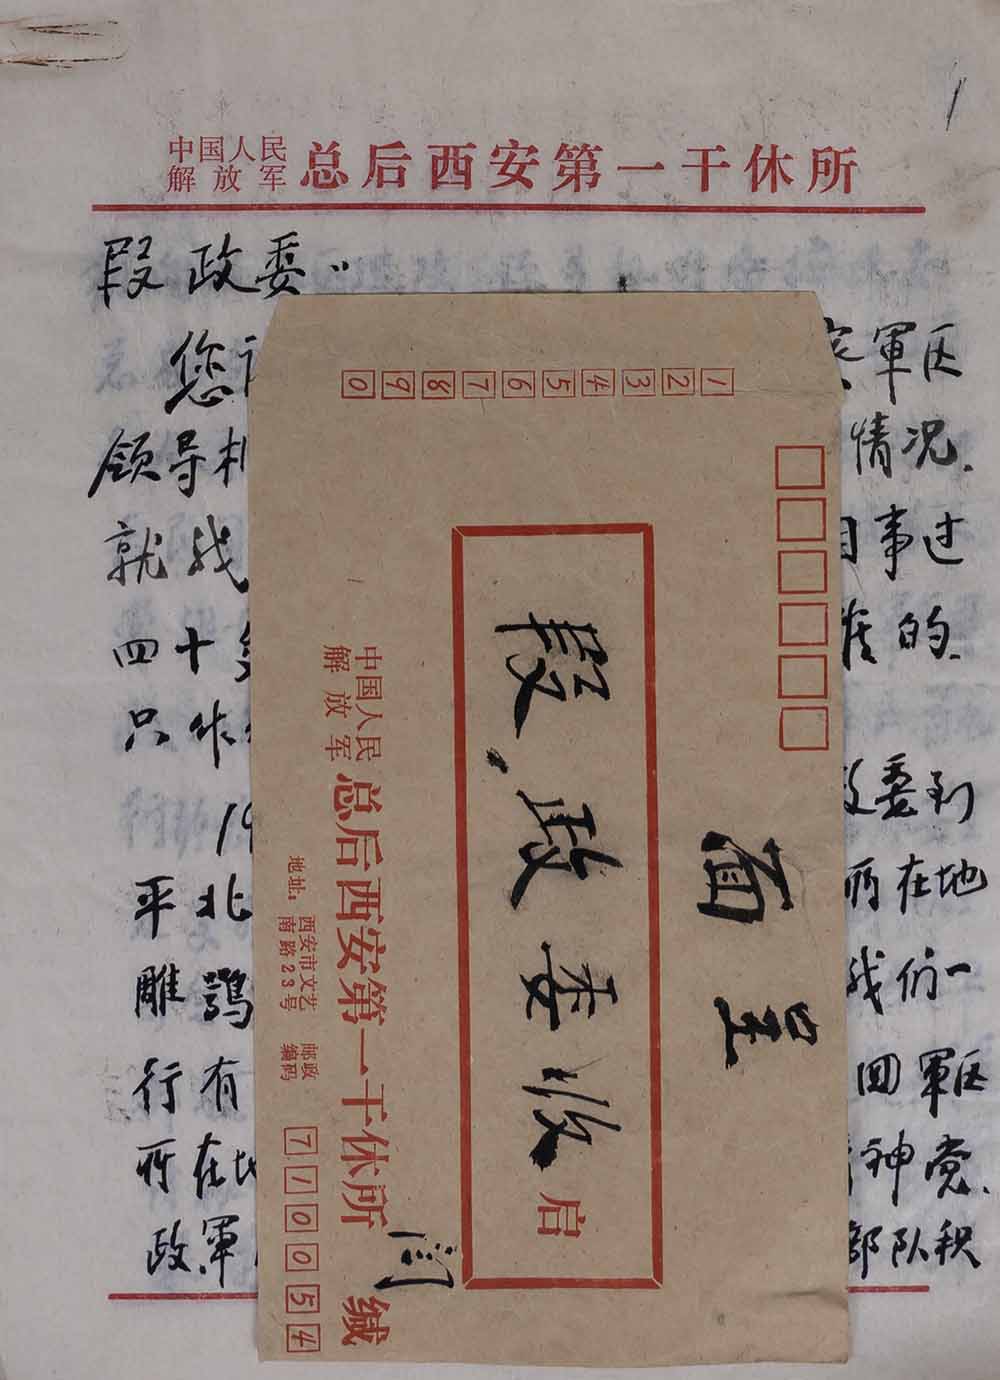 1
中国人民
解放军
总后西安第一干休所
段政委：
您
軍区
领导
情况.
就我
事过
四十
的.
只作
19
政委到
平北
所在地
雕鹗
我们一
行有
回軍区
所在地
神党.
政.軍
部队积
1234567890
面呈
段政委收
启
中国人民
解放军
总后西安第一干休所
闫
缄
地址：西安市文艺
南路23号
邮政
编码
710054